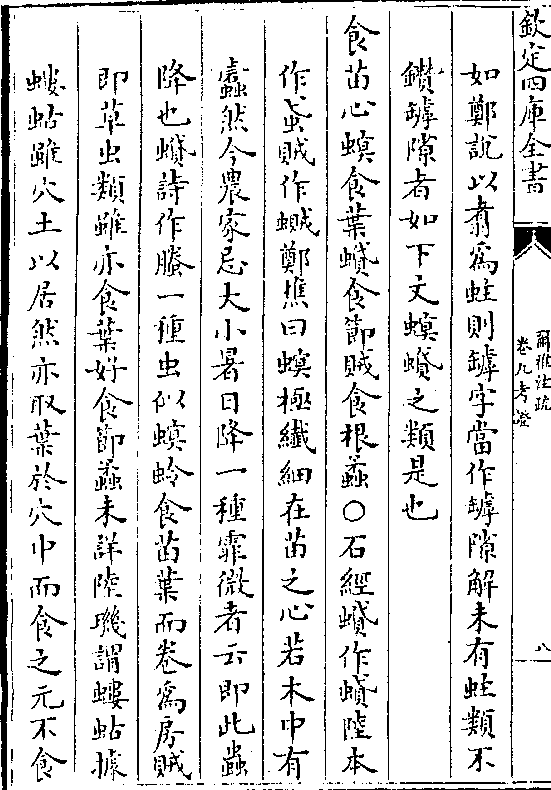 欽定四庫全書
爾雅注疏
卷九考證
八
如鄭說以翥為蛀則罅字當作罅隙解未有蛀類不
鑚罅隙者如下文螟蟘之類是也
食苗心螟食葉蟘食節賊食根蟊○石經蟘作蟘陸本
作蚉賊作蠈鄭樵曰螟極纖細在苗之心若木中有
蠧然今農家忌大小暑日降一種霏微者云即此蟲
降也蟘詩作螣一種虫似螟蛉食苗葉而卷為房賊
即草虫類雖亦食葉好食節蟊未詳陸璣謂螻蛄據
螻蛄雖穴土以居然亦取葉於穴中而食之元不食